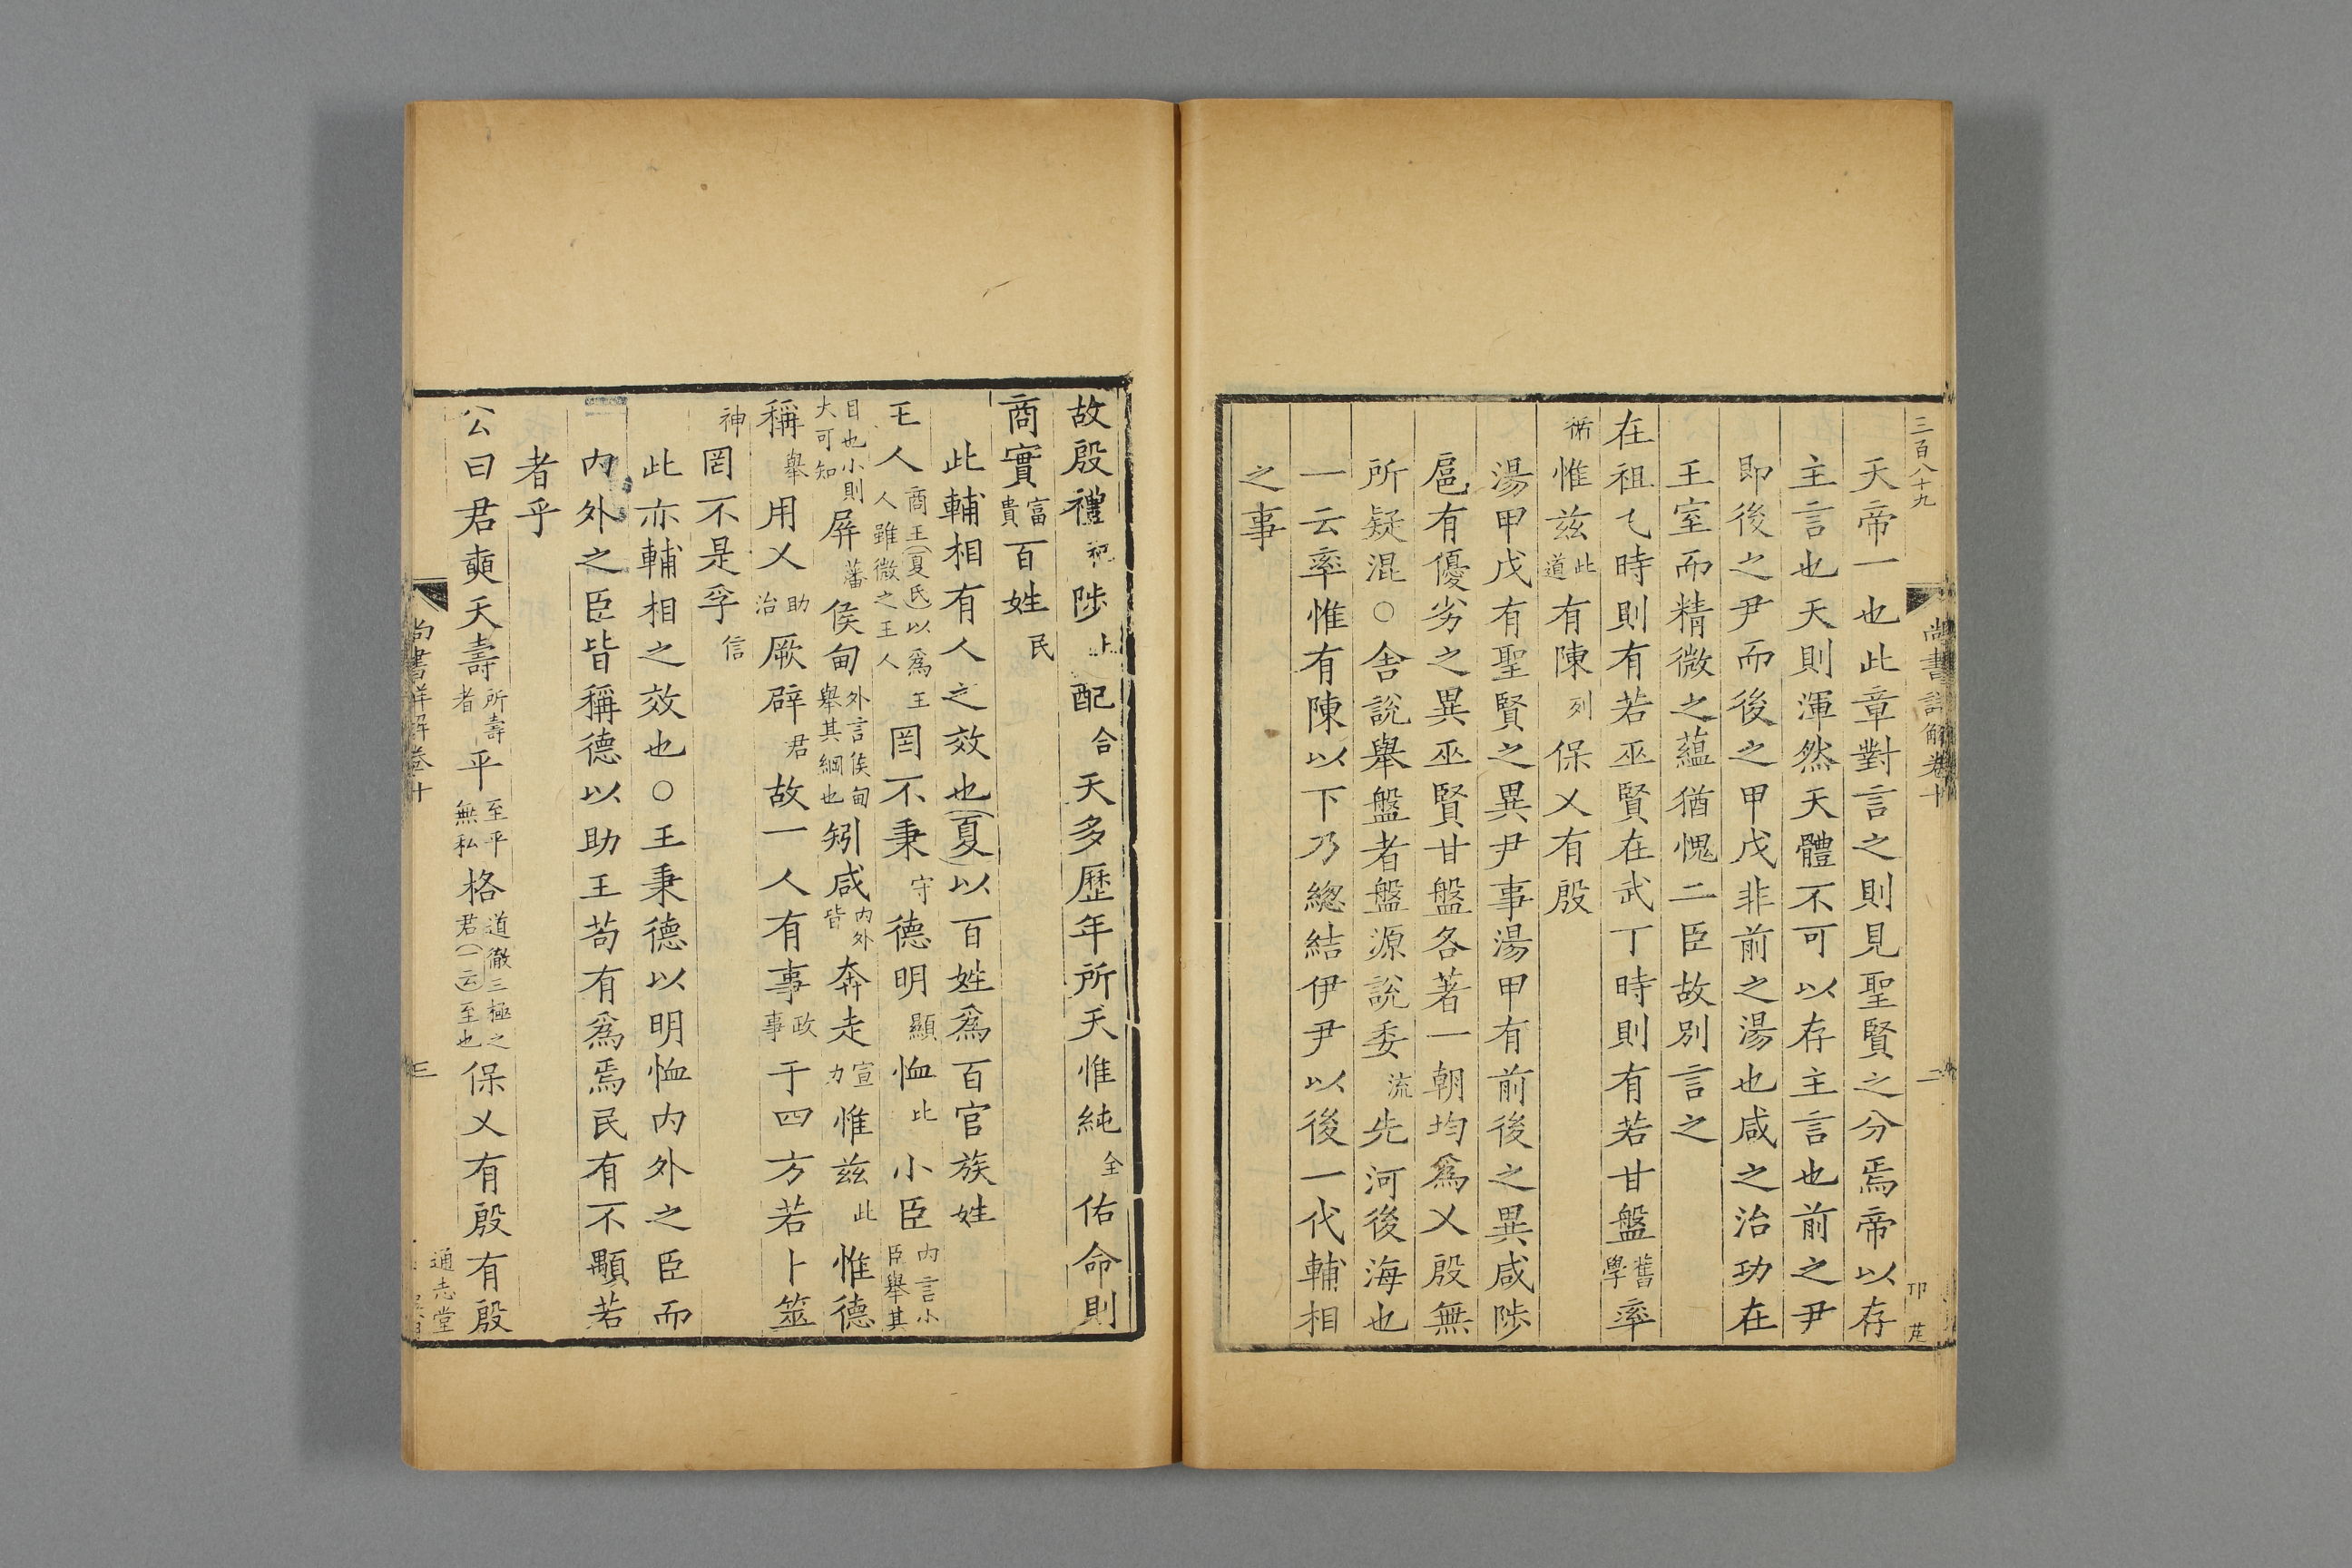 三百八十九
尚書詳解卷十
二
天帝一也此章對言之則見聖賢之分焉帝以存
主言也天則渾然天體不可以存主言也前之尹
即後之尹而後之甲戊非前之湯也咸之治功在
王室而精微之蘊猶愧二臣故別言之
在祖乙時則有若巫賢在武丁時則有若甘盤舊學率
循惟茲此道有陳列保乂有殷
湯甲戊有聖賢之異尹事湯甲有前後之異咸陟
扈有優劣之異巫賢甘盤各著一朝均爲乂殷無
所疑混○舍說舉盤者盤源說委流先河後海也
一云率惟有陳以下乃總結伊尹以後一代輔相
之事
故殷禮祀陟上配合天多歷年所天惟純全佑命則
商實富貴百姓民
此輔相有人之效也(夏)以百姓爲百官族姓
王人商王(夏氏)以爲王人雖微之王人罔不秉守德明顯恤此小臣內言小臣舉其
目也小則大可知屏藩侯甸外言侯甸舉其綱也矧咸內外皆奔走宣力惟茲此惟德
稱舉用乂助治厥辟君故一人有事政事于四方若卜筮
神罔不是孚信
此亦輔相之效也○王秉德以明恤內外之臣而
內外之臣皆稱德以助王苟有爲焉民有不顒若
者乎
公曰君奭天壽所壽者平至平無私格道徹三極之君(一云)至也保乂有殷有殷
尚書詳解卷十
三
通志堂